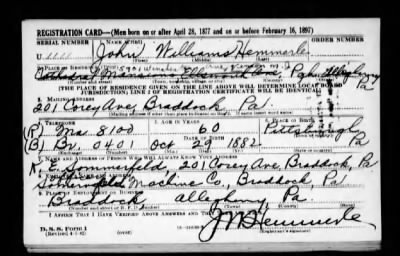 REGISTRATION CARD—(Men born on or after April 28, 1877 and on or before February 16, 1897)
SERIAL NUMBER 1. NAME (Print) ORDER NUMBER
U John William Hemmerle
(First) (Middle) (Last)
2. PLACE OF RESIDENCE (Print)
Cathedral Mansions Ellsworth Ave, Pgh. Allegheny Pa
(THE PLACE OF RESIDENCE GIVEN ON THE LINE ABOVE WILL DETERMINE LOCAL BOARD
JURISDICTION; LINE 2 OF REGISTRATION CERTIFICATE WILL BE IDENTICAL)
3. MAILING ADDRESS
201 Corey Ave, Braddock, Pa.
4. TELEPHONE 5. AGE IN YEARS 6. PLACE OF BIRTH
(R) Ma. 8100 60 Pittsburgh
DATE OF BIRTH
(B) Br. 0401 Oct 29 1882 Pa
7. NAME AND ADDRESS OF PERSON WHO WILL ALWAYS KNOW YOUR ADDRESS
N. E. Sommerfeld, 201 Corey Ave, Braddock, Pa
8. EMPLOYER'S NAME AND ADDRESS
Sommerfeld Machine Co., Braddock, Pa.
9. PLACE OF EMPLOYMENT OR BUSINESS
Braddock, Allegheny Pa.
I AFFIRM THAT I HAVE VERIFIED ABOVE ANSWERS AND THAT THEY ARE TRUE.
D. S. S. Form 1
(Revised 4-1-42) (over)
J W Hemmerle